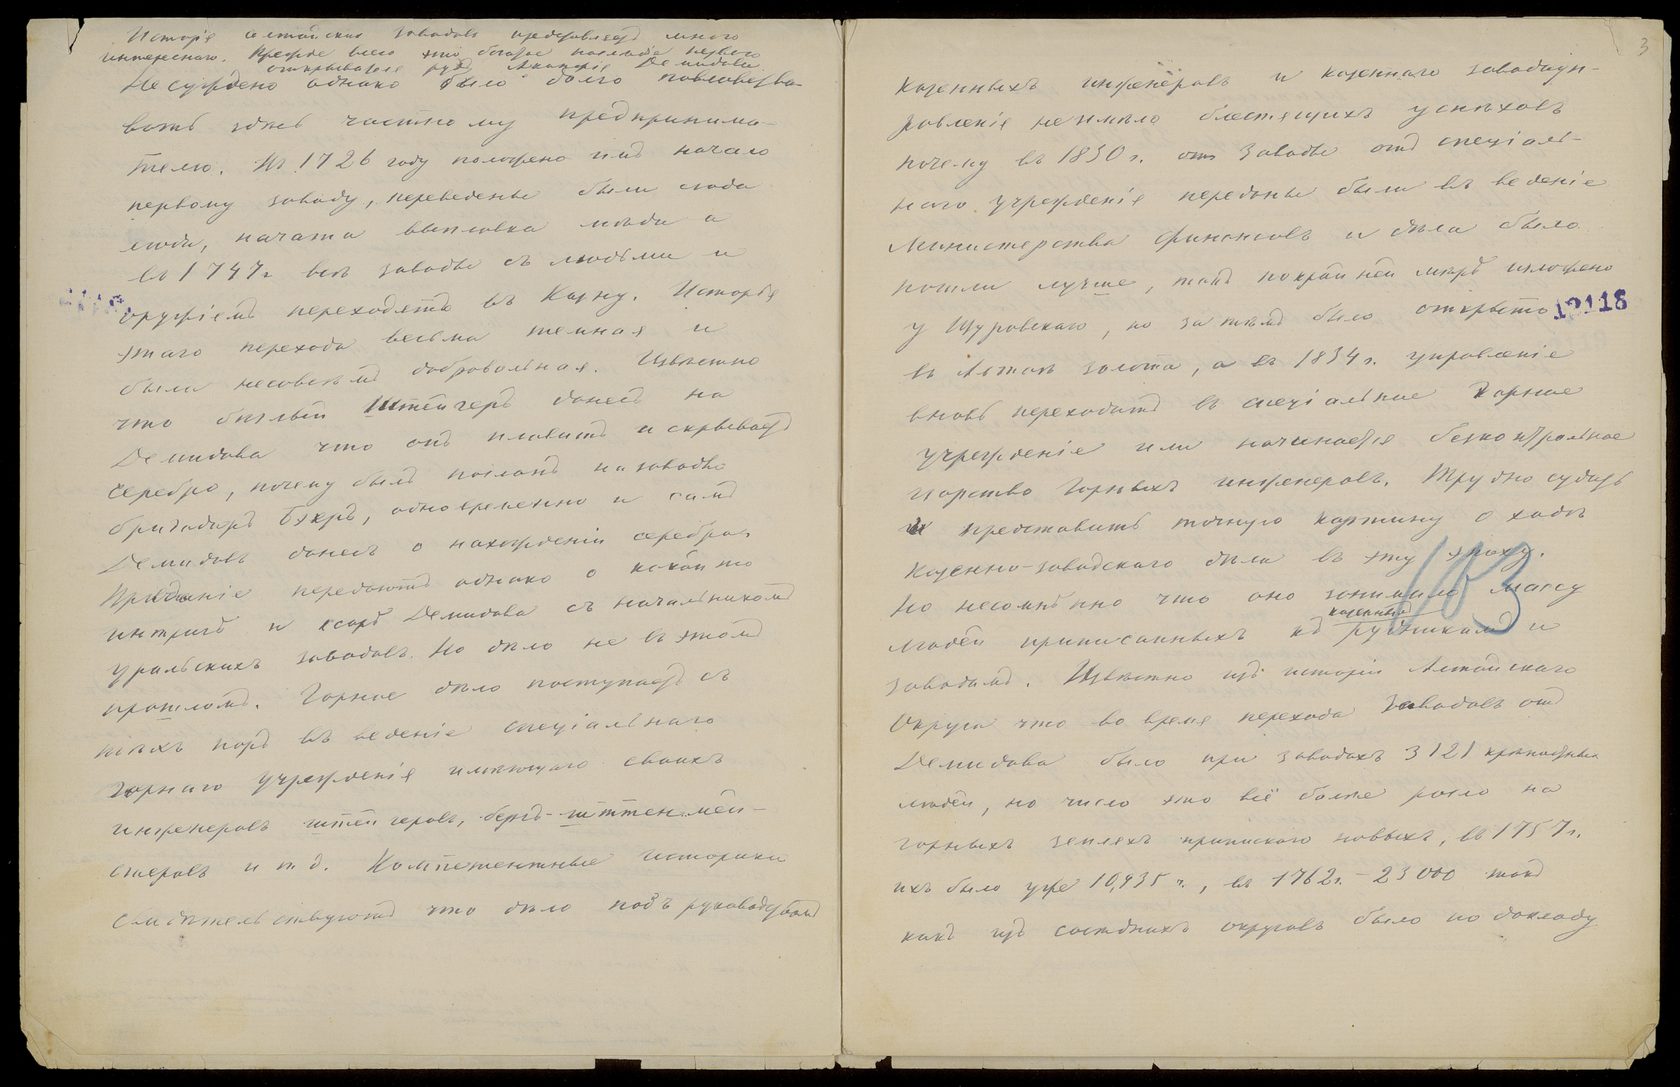 Исторія алтайских заводов представляет много
интереснаго. Прежде всего это богатое наследіе перваго
открывателя руд Акинфія Демидова.
Не суждено однако было долго повелевства-
вать здѣсь частному предпринима-
телю. Въ 1726 году положено имъ начало
первому заводу, переведены были сюда
люди, начата выплавка мѣди а
въ 1747 г. всѣ заводы съ людьми и
оружіемъ переходятъ въ Казну. Исторія
этаго перехода весьма темная и
была несовсѣмъ добровольная. Извѣстно
что бѣглый Штейгеръ донесъ на
Демидова что онъ плавитъ и скрываетъ
серебро, почему былъ посланъ на заводы
бригадиръ Бэкръ, одновременно и самъ
Демидовъ донесъ о нахожденіи серебра,
Преданіе передаютъ однако о какой то
интригѣ и ссорѣ Демидова съ начальникомъ
уральскихъ заводовъ. Но дѣло не въ этомъ
прошломъ. Горное дѣло поступаетъ съ
тѣхъ поръ въ веденіе спеціальнаго
Горнаго учрежденія имѣющаго своихъ
инженеровъ штейгеровъ, бергъ-гиттенмей-
стеровъ и т д. Компетентные историки
свидѣтельствуютъ что дѣло подъ руководствомъ
3
казенныхъ инженёровъ и казеннаго заводауп-
равленія не имѣло блестящихъ успѣховъ
почему въ 1830 г. заводы отъ спеціаль-
наго учрежденія переданы были въ веденіе
Министерства Финансовъ и дѣла было
пошли лучше, такъ покрайней мѣрѣ изложено
у Щуровскаго, но затѣмъ было открыто
12118
въ Алтаѣ золото, а въ 1834 г. управленіе
вновь переходитъ въ спеціальное Горное
учрежденіе или начинается безконтрольное
царство Горныхъ инженеровъ. Трудно судить
и представить точную картину о ходѣ
казенно-заводскаго дѣла въ эту эпоху.
103
Но несомнѣнно что оно занимало массу
людей приписанныхъ къ казеннымъ рудникамъ и
заводамъ. Извѣстно изъ исторіи Алтайскаго
Округа что во время перехода Заводовъ отъ
Демидова было при заводахъ 3121 крѣпостныхъ
людей, но число это всё болѣе росло на
горныхъ земляхъ новыхъ, въ 1757 г.
ихъ было уже 10,935 ч., въ 1762 г. - 23000 такъ
какъ изъ сосѣднихъ округовъ было по докладу